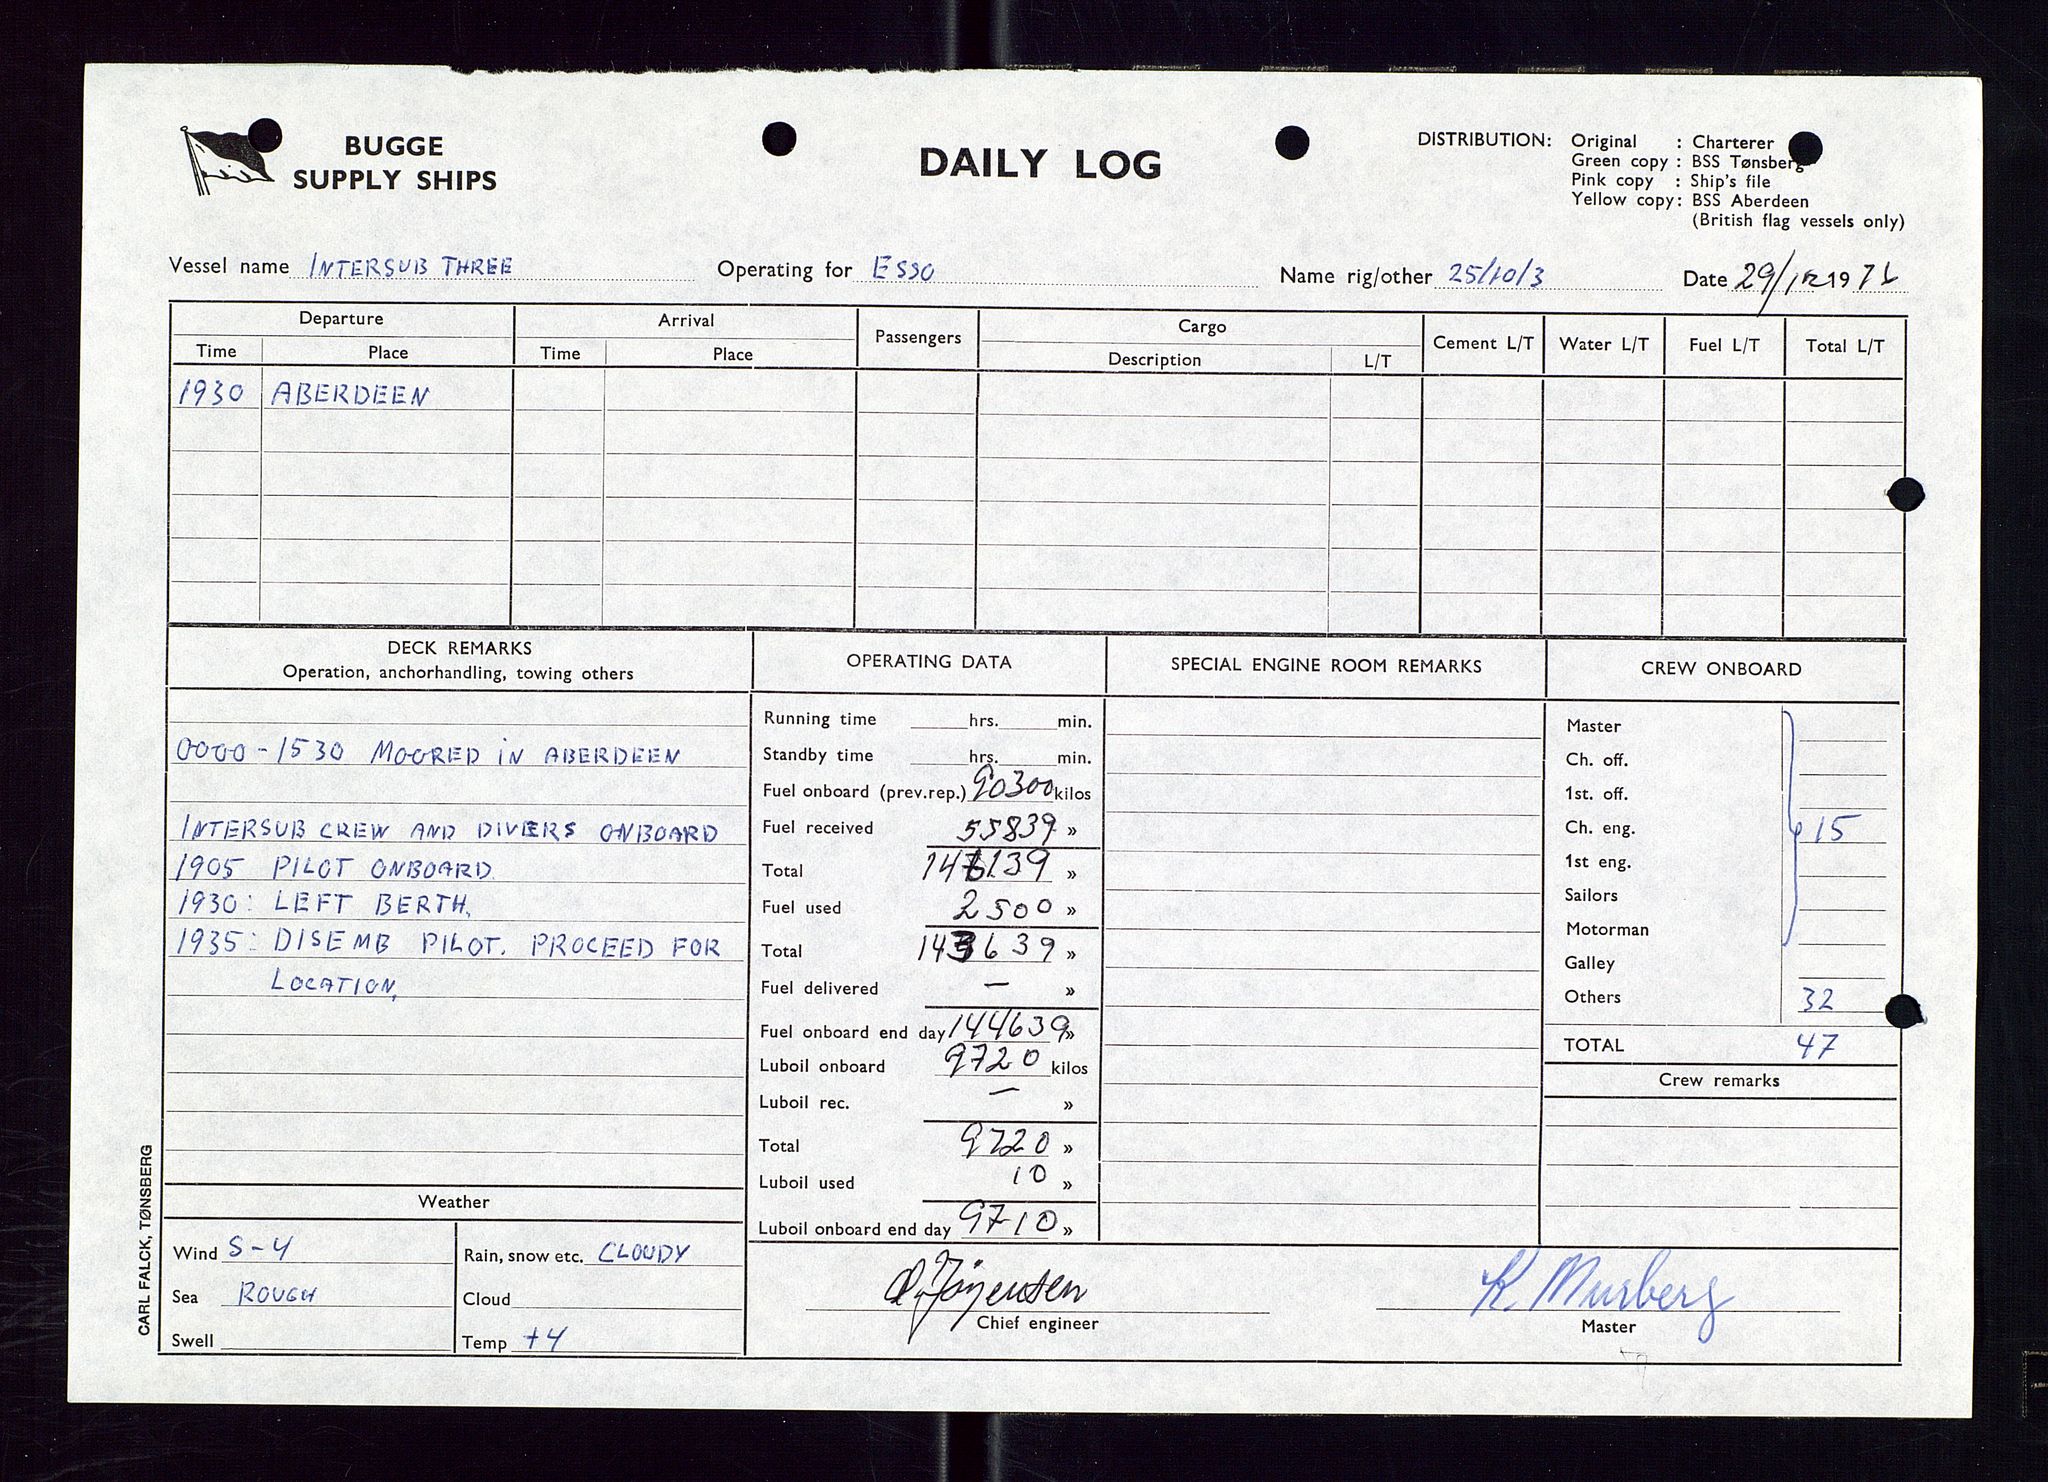 BUGGE
SUPPLY SHIPS
DAILY LOG
DISTRIBUTION: Original : Charterer
Green copy : BSS Tønsberg
Pink copy : Ship's file
Yellow copy : BSS Aberdeen
(British flag vessels only)
Vessel name INTERSUB THREE Operating for ESSO Name rig/other 25/10/3 Date 29/12 19
Departure Arrival Passengers Cargo Cement L/T Water L/T Fuel L/T Total L/T
Time Place Time Place Description L/T
1930 ABERDEEN
DECK REMARKS
Operation, anchorhandling, towing others
0000-1530 MOORED IN ABERDEEN
INTERSUB CREW AND DIVERS ONBOARD
1905 PILOT ONBOARD.
1930: LEFT BERTH.
1935: DISEMB PILOT. PROCEED FOR
LOCATION.
Weather
Wind S-4
Sea ROUGH
Swell
Rain, snow etc. CLOUDY
Cloud
Temp +4
OPERATING DATA
Running time hrs. min.
Standby time hrs. min.
Fuel onboard (prev.rep.) 90300 kilos
Fuel received 55839 »
Total 146139 »
Fuel used 2500 »
Total 143639 »
Fuel delivered — »
Fuel onboard end day 144639 »
Luboil onboard 9720 kilos
Luboil rec. — »
Total 9720 »
Luboil used 10 »
Luboil onboard end day 9710 »
SPECIAL ENGINE ROOM REMARKS
CREW ONBOARD
Master
Ch. off.
1st. off.
Ch. eng. 15
1st eng.
Sailors
Motorman
Galley
Others 32
TOTAL 47
Crew remarks
Jörgensen
Chief engineer
K. Murberg
Master
CARL FALCK, TØNSBERG